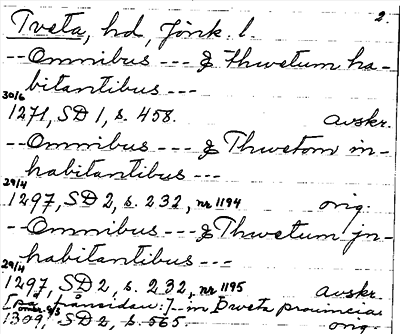 2.
Tveta, hd, Jönk. l.
-- Omnibus --- & Thwetum ha-
bitantibus ---
30/6
1271, SD 1, s. 458. avskr.
-- Omnibus --- & Thwetom in-
habitantibus ---
29/4
1297, SD 2, s. 232, nr 1194 orig.
-- Omnibus --- & Thwetum jn-
habitantibus ---
29/4
1297, SD 2, s. 232, nr 1195 avskr.
[på frånsidan:] -- in Dweta prouincia
omkr. 9/3
1309, SD 2, s. 565. orig.